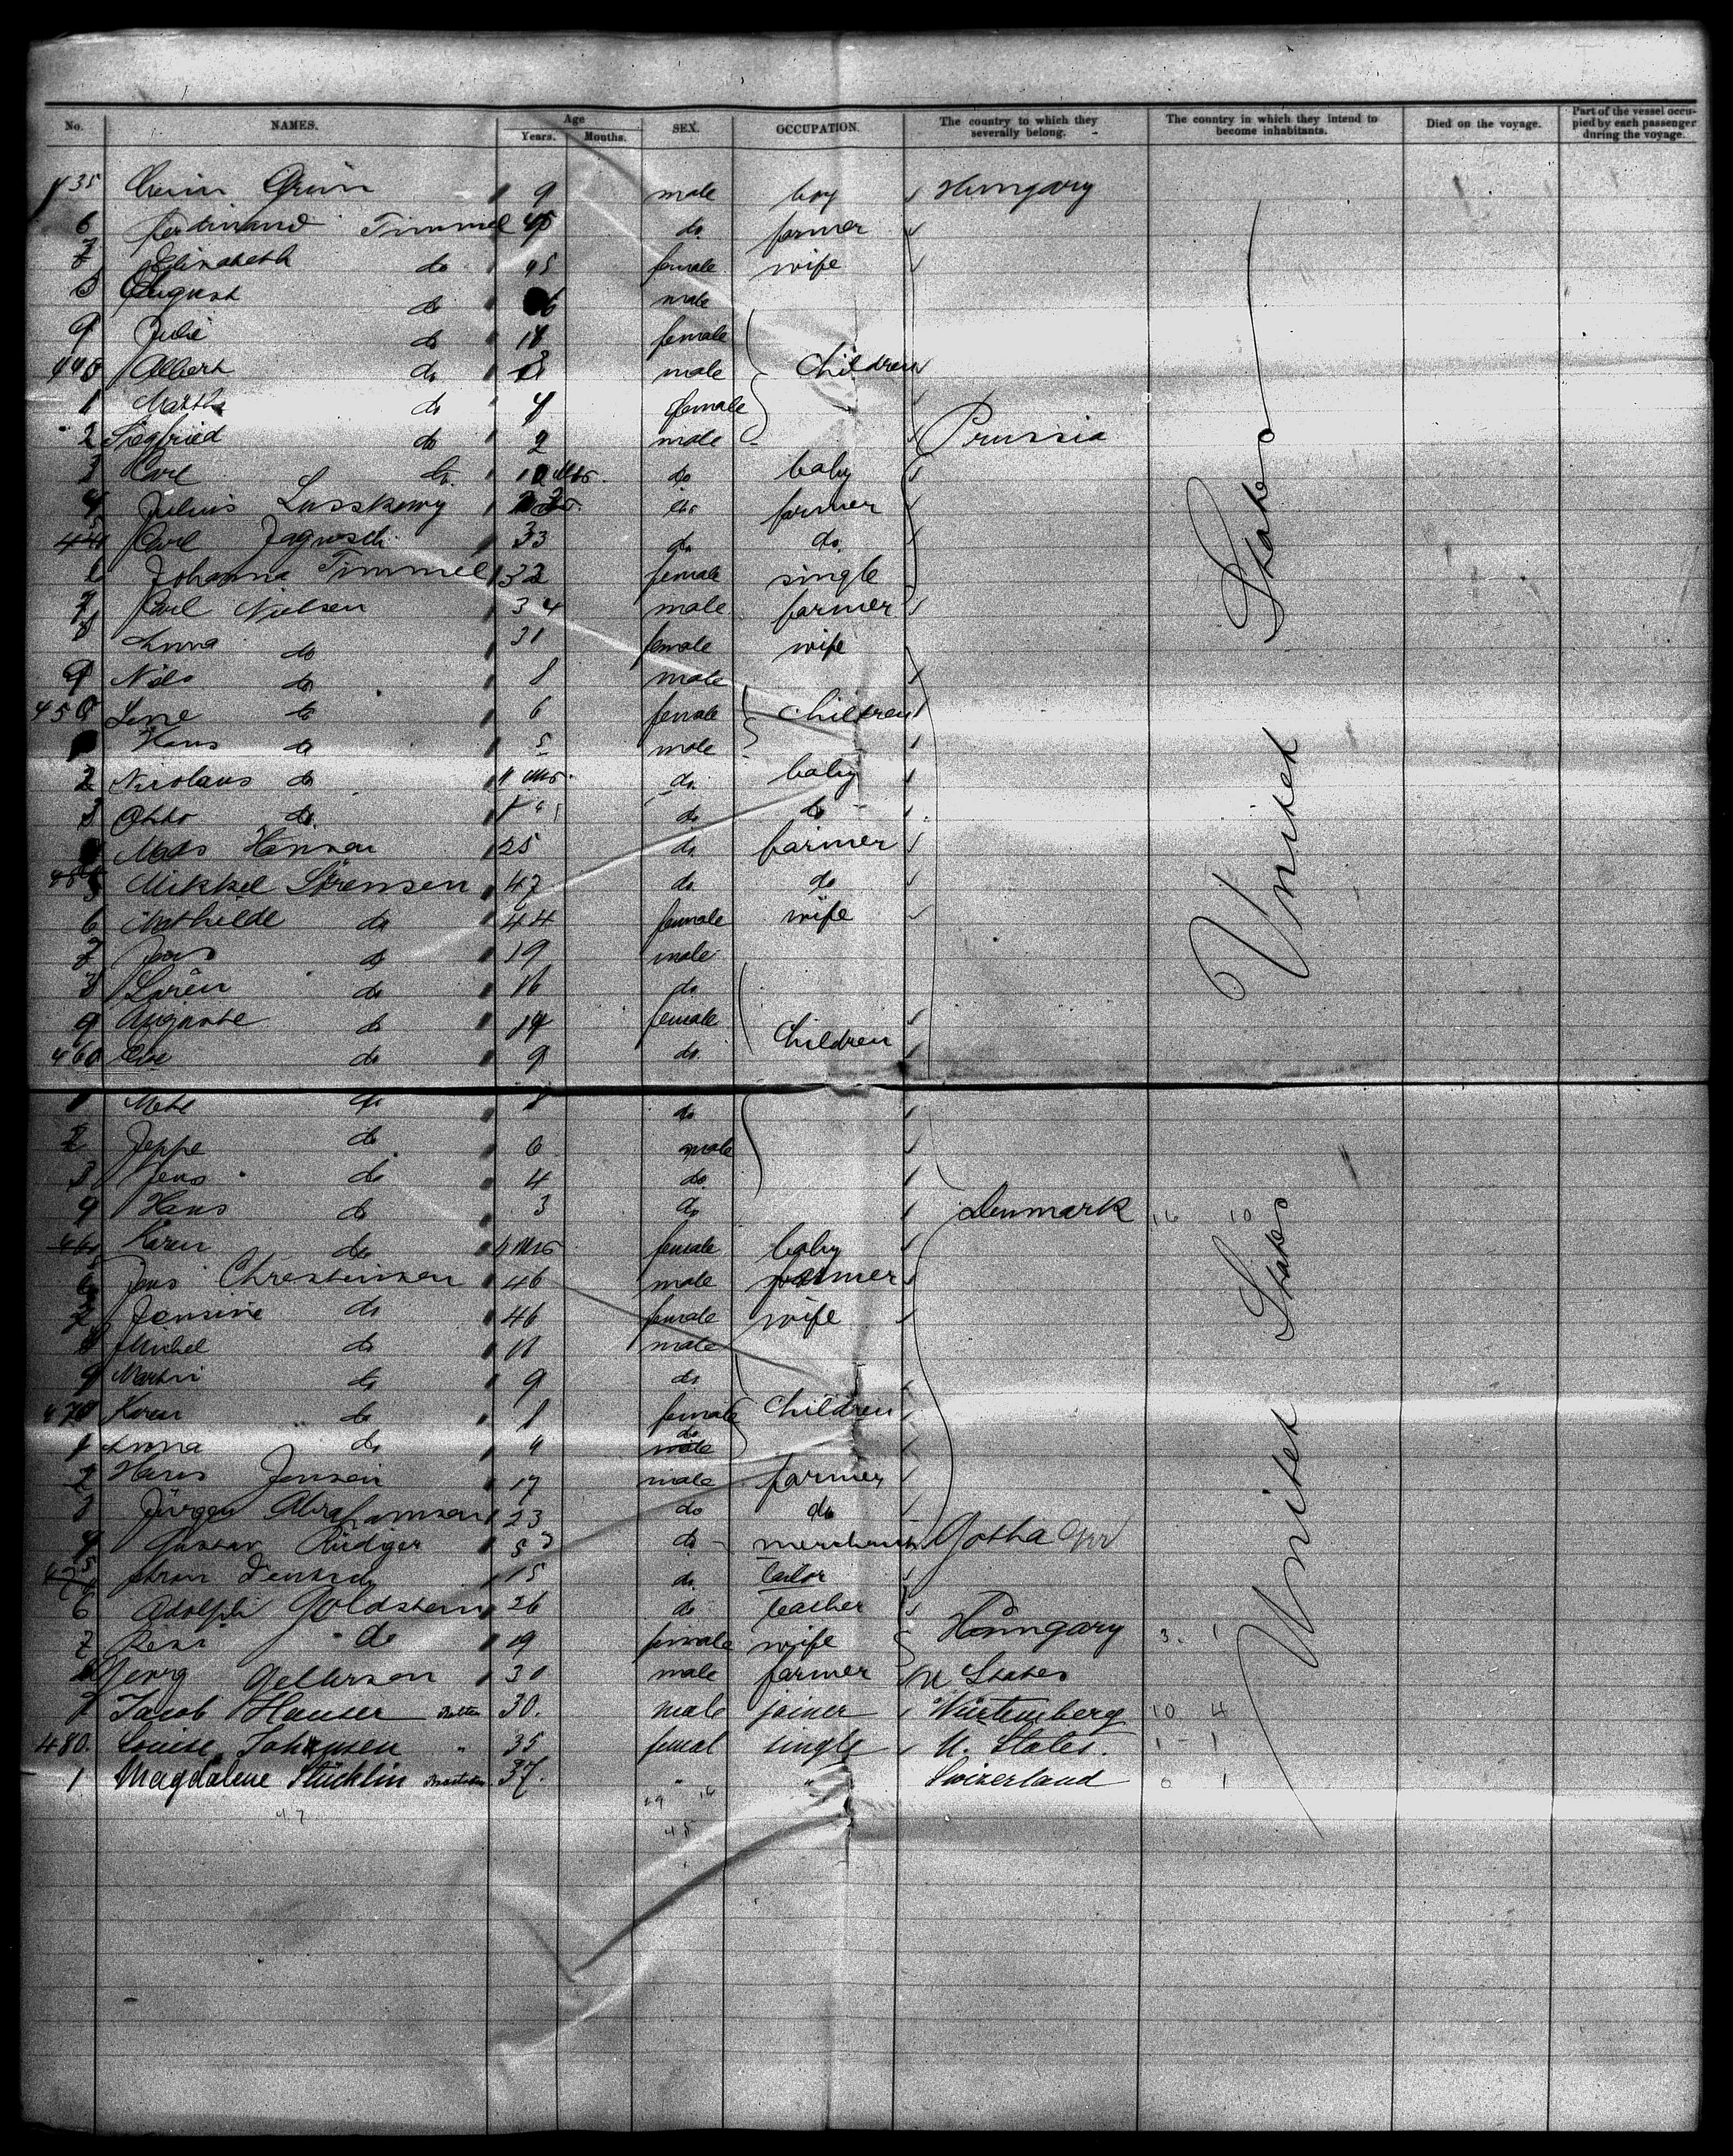 No. NAMES. Age Years. Months. SEX. OCCUPATION. The country to which they severally belong. The country in which they intend to become inhabitants. Died on the voyage. Part of the vessel occupied by each passenger during the voyage.
435 9 male boy Hungary
6 Ferdinand Timmel 45 do farmer
7 Elisabeth do 45 female wife
8 August do male
9 Julie do female
440 Albert do 8 male Children
1 Martha do 4 female
2 Siegfried do 2 male Prussia
3 Carl do 10 Mts. do baby
4 Julius do farmer
Carl 33 do do.
6 Johanna Timmel 32 female single
7 Carl Nielsen 34 male farmer
8 Anna do 31 female wife
9 Nils do 8 male
450 Line do 6 female Children
Hans do 5 male
2 Nicolaus do do. baby
3 Otto do. do do
Mads Hansen 25 do farmer
5 Mikkel Sörensen 47 do do
6 Mathilde do 44 female wife
7 Jens do 19 male
8 Sören do 16 do
9 Auguste do 14 female Children
460 do 9 do.
1 Mete do do
2 Jeppe do 6 male
3 Jens do 4 do.
Hans do 3 do Denmark 16 10
Karen do female baby
6 Jens Christensen 46 male farmer
7 Jensine do 46 female wife
8 Michel do 11 male
9 Martin do 9 do.
470 Karen do female Children
1 Anna do 4 do
2 Hans Jensen 17 male farmer
3 Jürgen Abrahamsen 23 do do
4 Gustav Rüdiger 53 do merchant Gotha Ger
15 do. tailor
6 Adolph Goldstein 26 do teacher
7 do 19 female wife Hungary 3. 1
Georg 30 male farmer U States
Jacob Hauser 30. male joiner Würtemberg 10 4
480. Louise 35 femal single U. States. 1 - 1
1 Magdalene Stücklin 37. " " Swizerland 0 1
47 29 16
45
United States
United States